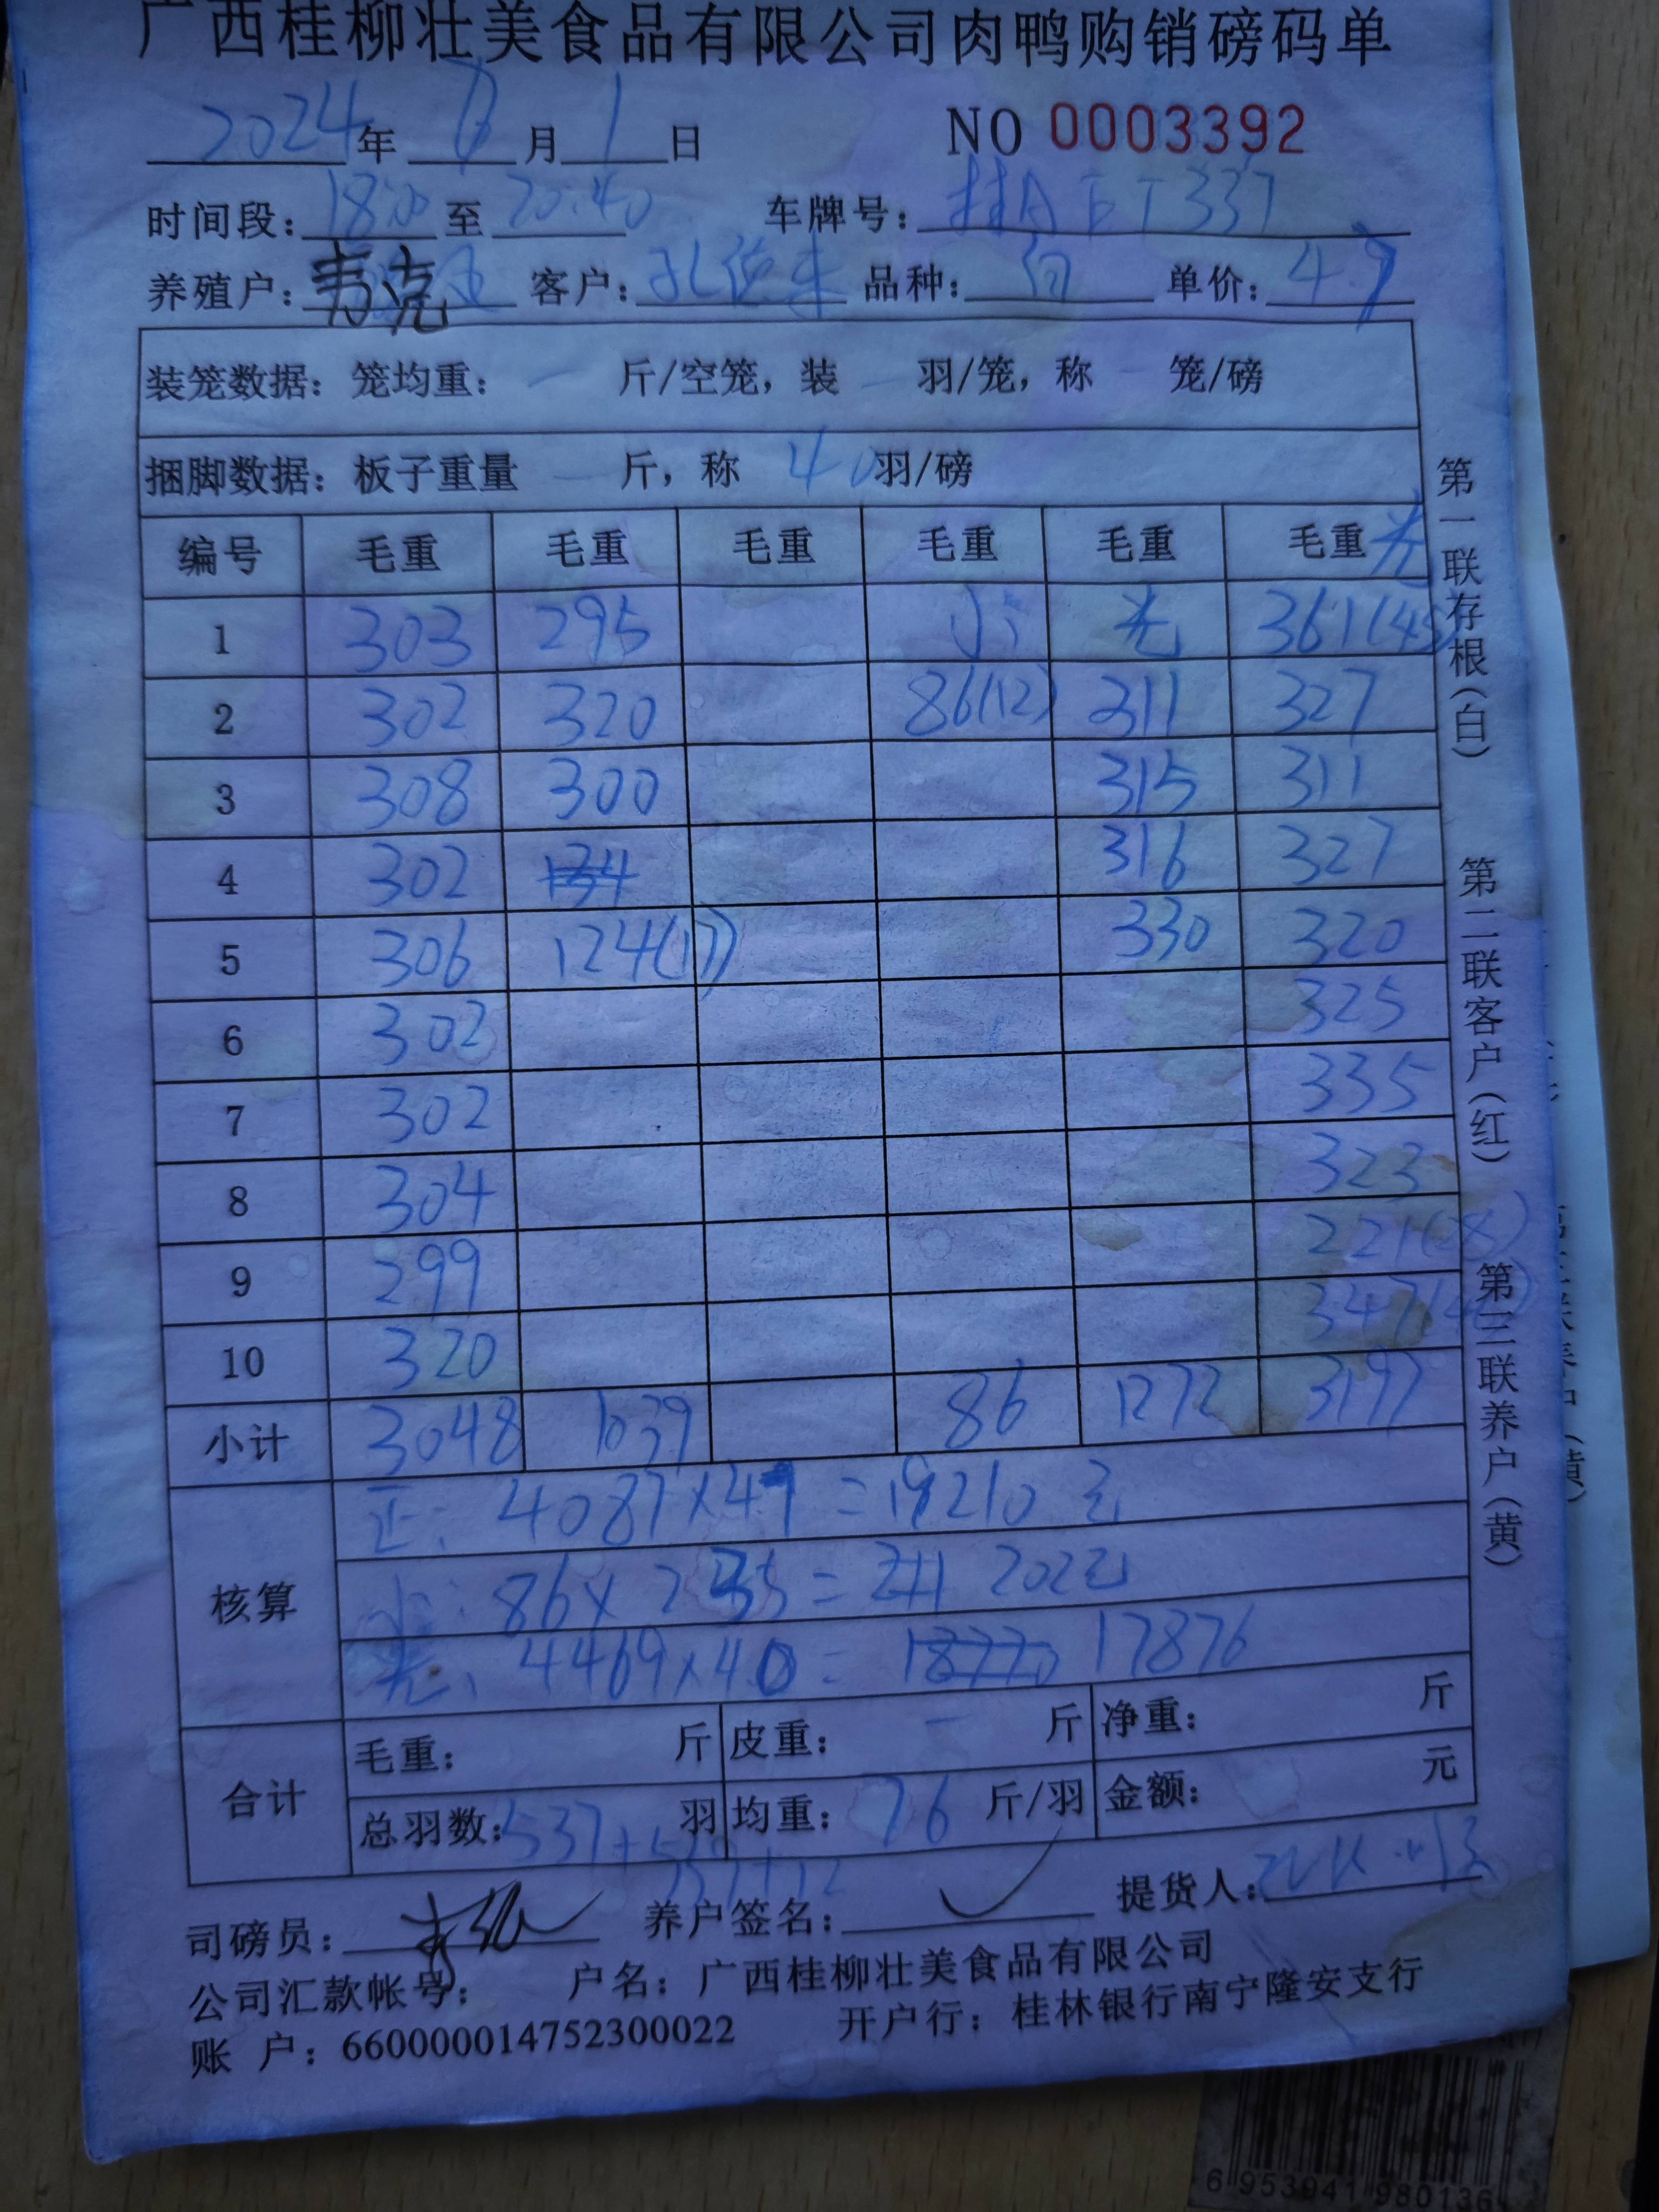 广西桂柳壮美食品有限公司肉鸭购销磅码单
2024年 8月1日 NO 0003392
时间段：18:00至20:40 车牌号：桂A 337
养殖户：韦克 客户：孔德来 品种： 单价：4.7
装笼数据：笼均重：— 斤/空笼，装 — 羽/笼，称 — 笼/磅
捆脚数据：板子重量 — 斤，称 40羽/磅
编号 毛重 毛重 毛重 毛重 毛重 毛重 光
1 303 295 小 光 361(45)
2 302 320 86(12) 311 327
3 308 300 315 311
4 302 134 316 327
5 306 124(17) 330 320
6 302 325
7 302 335
8 304 323
9 299 221(28)
10 320 347
小计 3048 1039 86 1272 3197
核算
正：4087×4.7=19210元
小：86×2.35= 202元
光：4469×4.0= 17876
合计
毛重： 斤 皮重：— 斤 净重： 斤
总羽数：537+ 羽 均重：7.6 斤/羽 金额： 元
司磅员： 养户签名： 提货人：
公司汇款帐号： 户名：广西桂柳壮美食品有限公司
账 户：660000014752300022 开户行：桂林银行南宁隆安支行
第一联存根（白）
第二联客户（红）
第三联养户（黄）
6 953041 980136